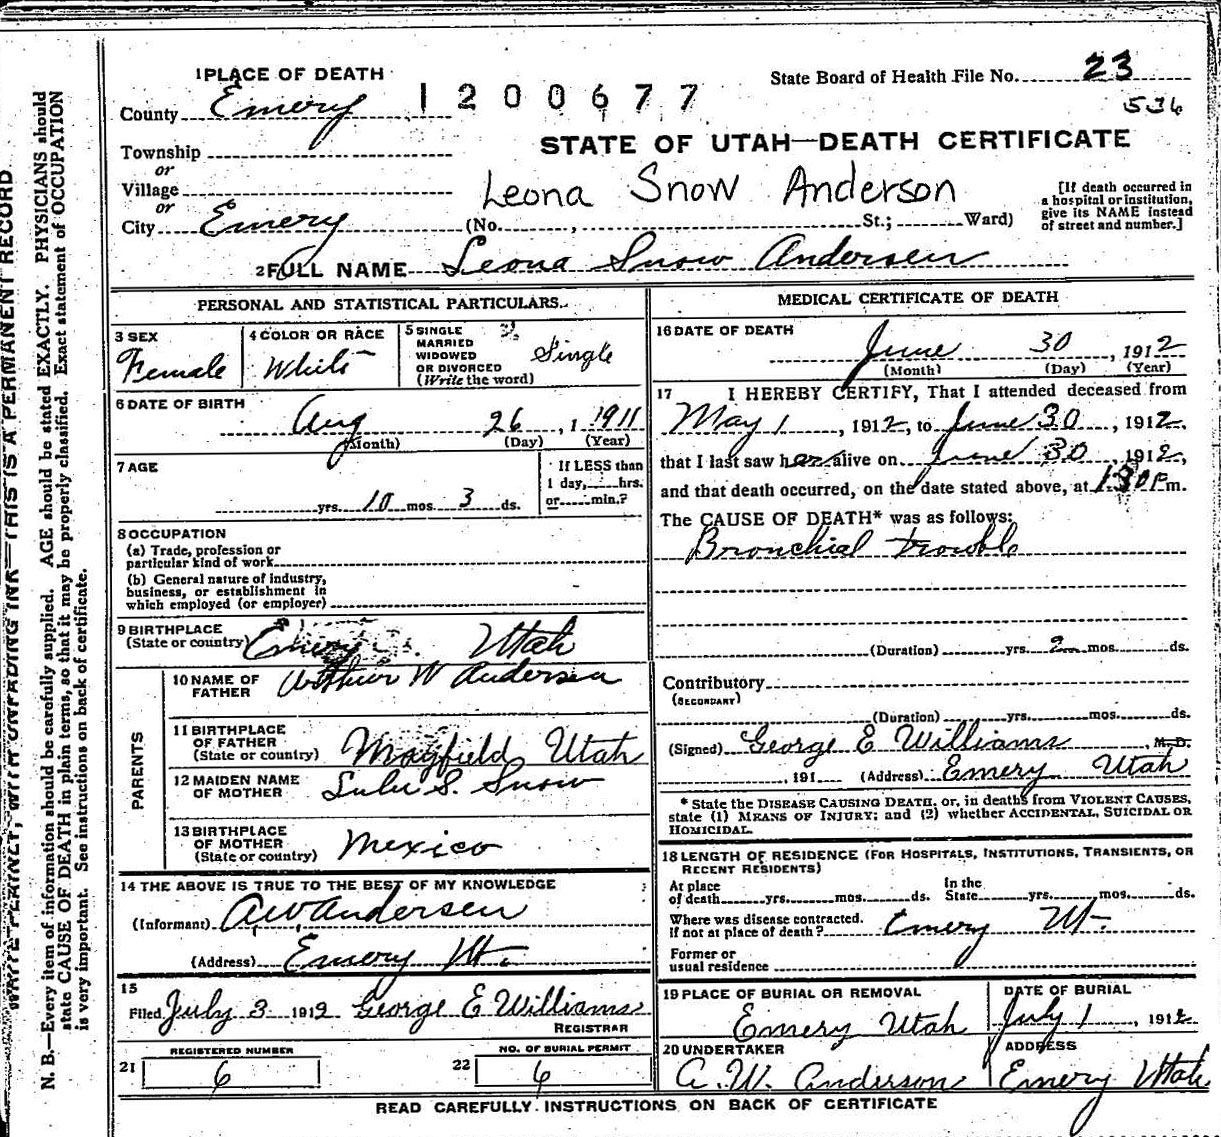 1 PLACE OF DEATH
County Emery
1200677
State Board of Health File No. 23
536
STATE OF UTAH—DEATH CERTIFICATE
Township
or
Village
or
City Emery
Leona Snow Anderson
(No. , St.; Ward)
[If death occurred in
a hospital or institution,
give its NAME instead
of street and number.]
2 FULL NAME Leona Snow Andersen
PERSONAL AND STATISTICAL PARTICULARS.
3 SEX
Female
4 COLOR OR RACE
White
5 SINGLE
MARRIED
WIDOWED
OR DIVORCED
(Write the word)
Single
6 DATE OF BIRTH
Aug 26, 1 1911
(Month) (Day) (Year)
7 AGE
yrs. 10 mos. 3 ds.
If LESS than
1 day, hrs.
or min.?
8 OCCUPATION
(a) Trade, profession or
particular kind of work
(b) General nature of industry,
business, or establishment in
which employed (or employer)
9 BIRTHPLACE
(State or country) Emery Utah
PARENTS
10 NAME OF
FATHER Arthur W Andersen
11 BIRTHPLACE
OF FATHER
(State or country) Mayfield Utah
12 MAIDEN NAME
OF MOTHER Lulu S. Snow
13 BIRTHPLACE
OF MOTHER
(State or country) Mexico
14 THE ABOVE IS TRUE TO THE BEST OF MY KNOWLEDGE
(Informant) A.W. Andersen
(Address) Emery Ut.
15
Filed July 3 1912 George E Williams
REGISTRAR
21 REGISTERED NUMBER
6
22 NO. OF BURIAL PERMIT
6
MEDICAL CERTIFICATE OF DEATH
16 DATE OF DEATH
June 30, 1912
(Month) (Day) (Year)
17 I HEREBY CERTIFY, That I attended deceased from
May 1, 1912, to June 30, 1912,
that I last saw her alive on June 30, 1912,
and that death occurred, on the date stated above, at 130 P m.
The CAUSE OF DEATH* was as follows:
Bronchial trouble
(Duration) yrs. 2 mos. ds.
Contributory
(SECONDARY)
(Duration) yrs. mos. ds.
(Signed) George E Williams, M.D.
, 191 (Address) Emery Utah
* State the DISEASE CAUSING DEATH, or, in deaths from VIOLENT CAUSES,
state (1) MEANS OF INJURY; and (2) whether ACCIDENTAL, SUICIDAL OR
HOMICIDAL.
18 LENGTH OF RESIDENCE (FOR HOSPITALS, INSTITUTIONS, TRANSIENTS, OR
RECENT RESIDENTS)
At place
of death yrs. mos. ds.
In the
State yrs. mos. ds.
Where was disease contracted.
if not at place of death? Emery Ut.
Former or
usual residence
19 PLACE OF BURIAL OR REMOVAL
Emery Utah
DATE OF BURIAL
July 1, 1912
20 UNDERTAKER
A. W. Anderson
ADDRESS
Emery Utah
READ CAREFULLY INSTRUCTIONS ON BACK OF CERTIFICATE
WRITE PLAINLY, WITH UNFADING INK—THIS IS A PERMANENT RECORD
N. B.—Every item of information should be carefully supplied. AGE should be stated EXACTLY. PHYSICIANS should
state CAUSE OF DEATH in plain terms, so that it may be properly classified. Exact statement of OCCUPATION
is very important. See instructions on back of certificate.